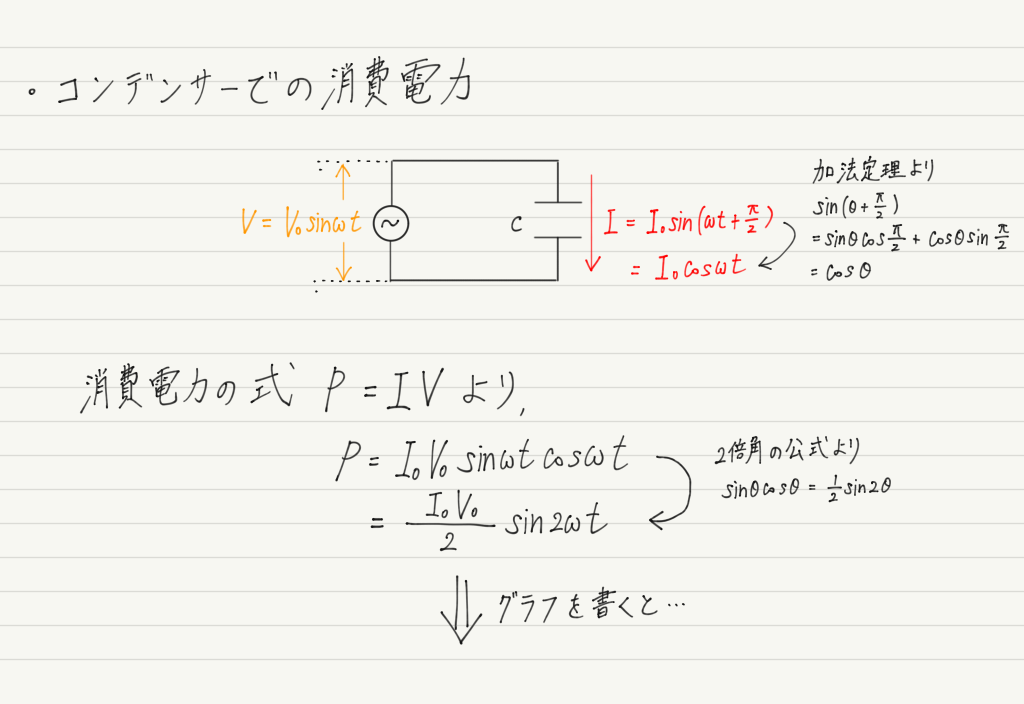 ・コンデンサーでの消費電力
V = V₀ sinωt
C
I = I₀ sin(ωt + π/2)
= I₀ cosωt
加法定理より
sin(θ + π/2)
= sinθ cos π/2 + cosθ sin π/2
= cosθ
消費電力の式 P = IV より,
P = I₀V₀ sinωt cosωt
= I₀V₀/2 sin2ωt
2倍角の公式より
sinθcosθ = 1/2 sin2θ
⇓ グラフを書くと…